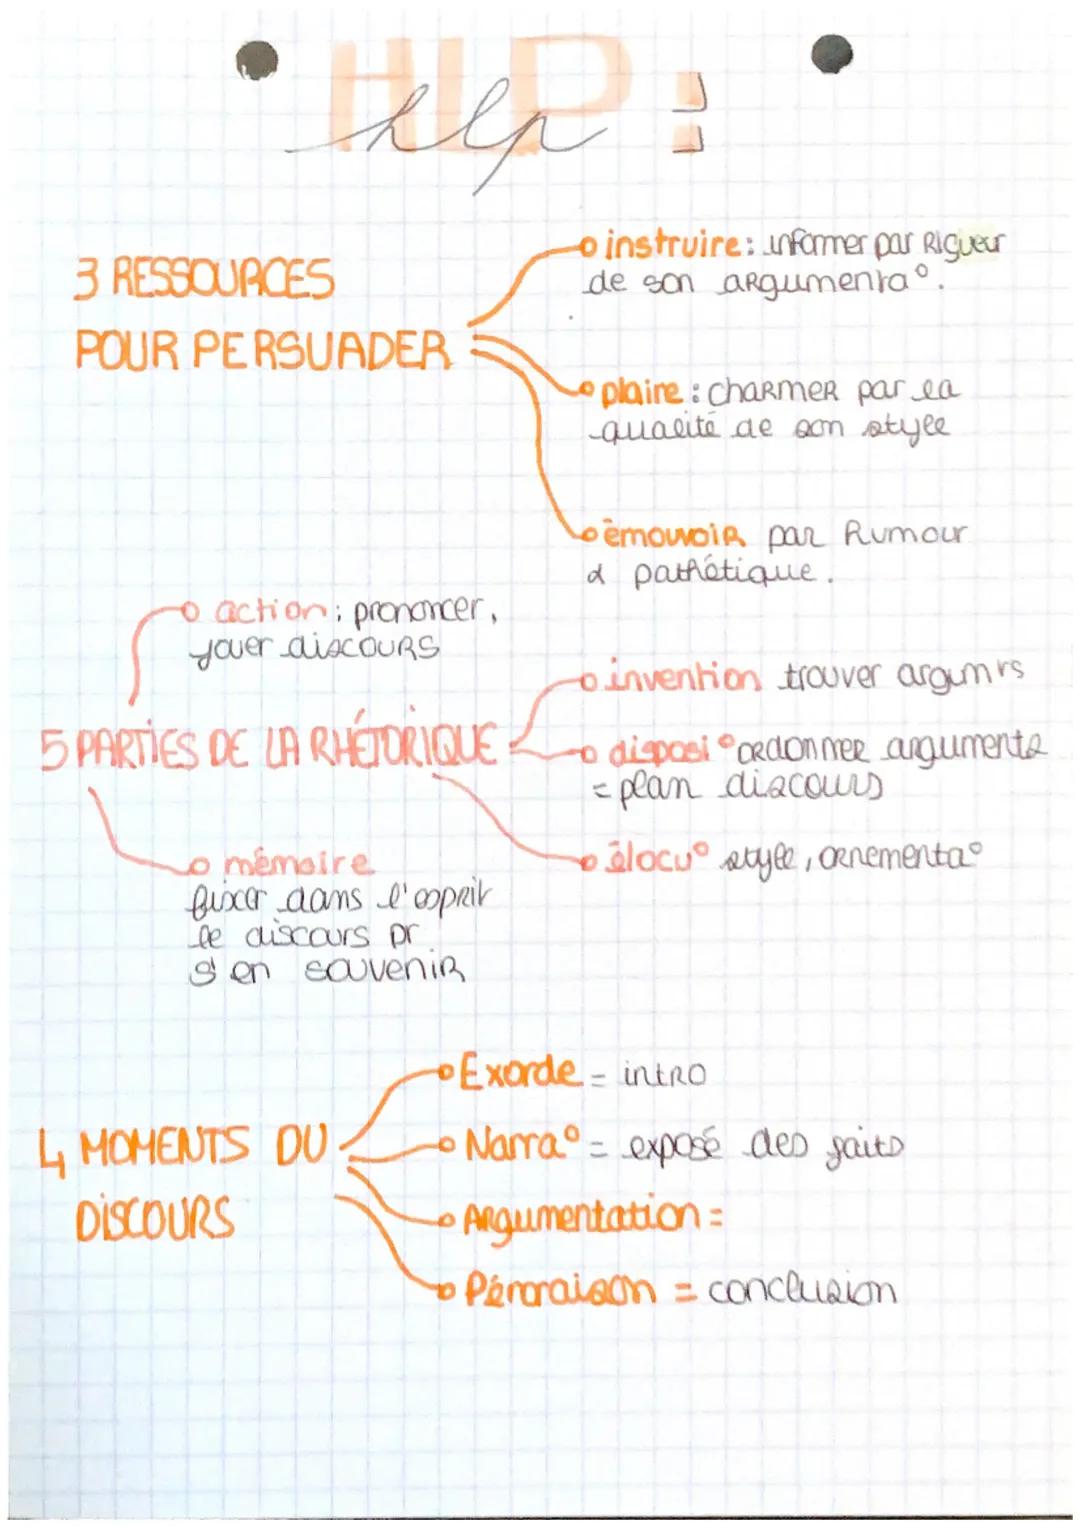 HLP :
hlp
3 RESSOURCES
POUR PERSUADER
instruire : informer par Rigueur
de son argumenta°.
plaire : charmer par la
qualité de son style
émouvoir par Rumour
& pathétique.
action : prononcer,
jouer discours
5 PARTIES DE LA RHÉTORIQUE
invention trouver argumts
disposi° ordonner arguments
= plan discours
élocu° style, ornementa°
mémoire
fixer dans l'esprit
le discours pr
s'en souvenir
4 MOMENTS DU
DISCOURS
Exorde = intro
Narra° = exposé des faits
Argumentation =
Péroraison = conclusion